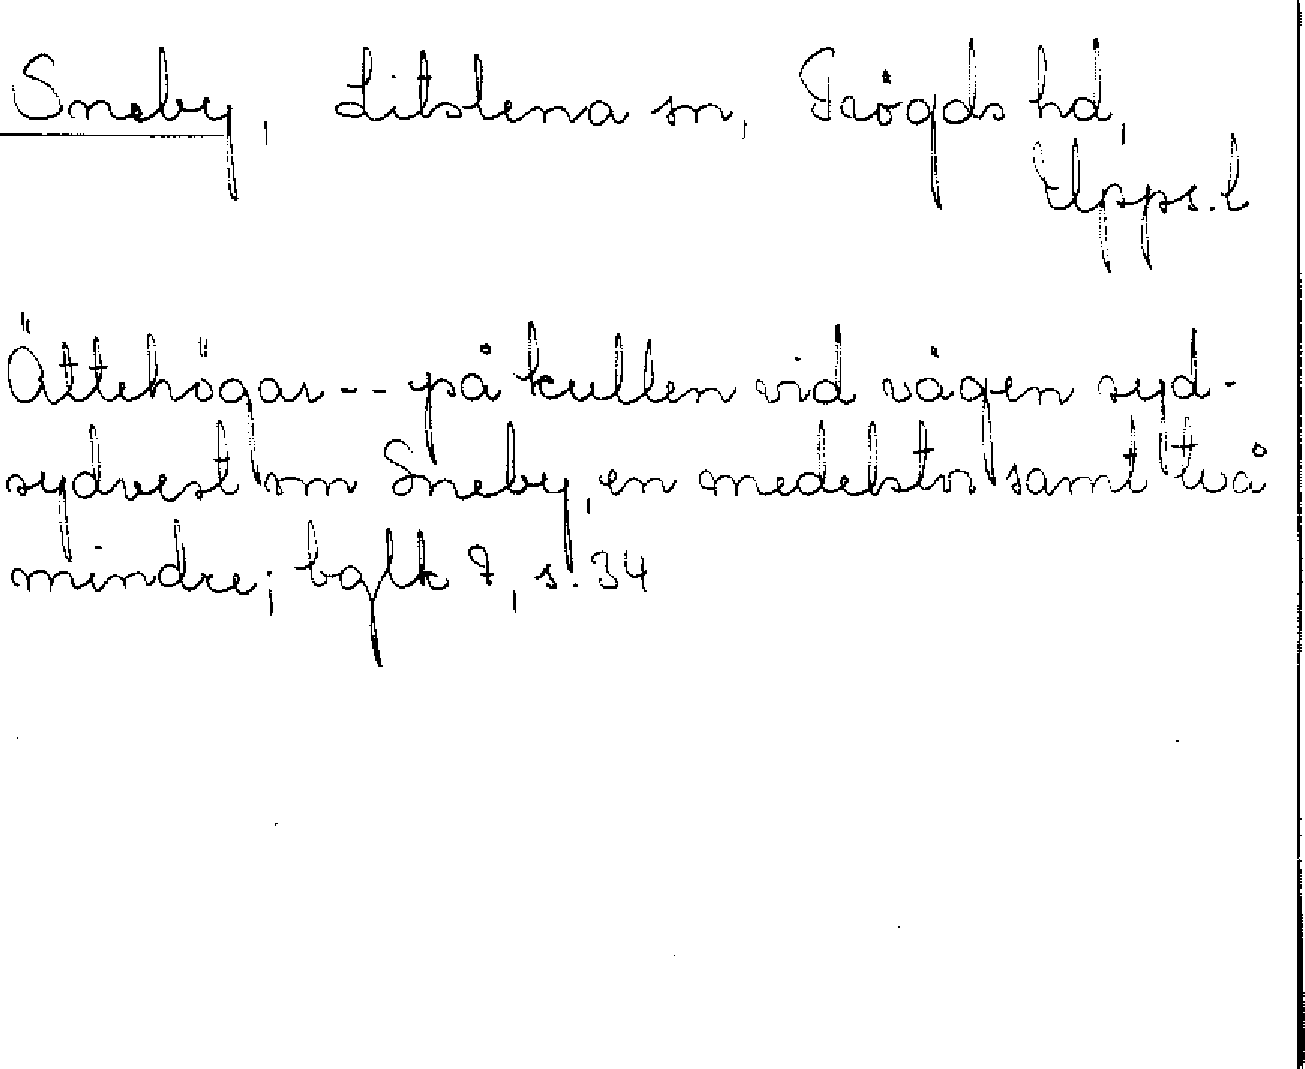 Sneby, Litslena sn, Trögds hd,
Upps. l
Ättehögar -- på kullen vid vägen syd-
sydvest om Sneby, en medelstor samt två
mindre; bglk 7, s. 34